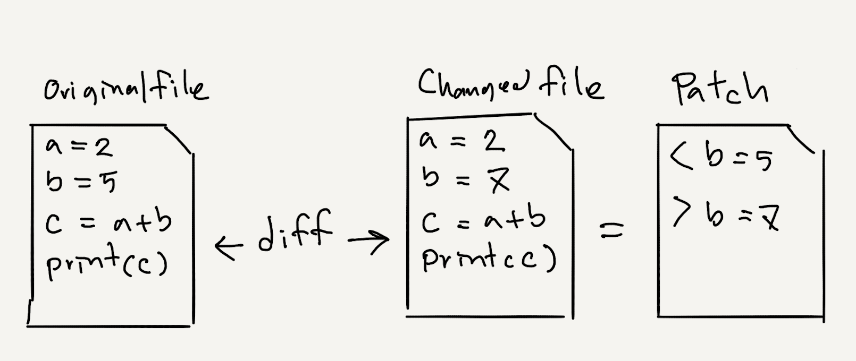 Original file
a = 2
b = 5
c = a+b
print(c)
← diff →
Changed file
a = 2
b = 7
c = a+b
print(c)
=
Patch
< b = 5
> b = 7